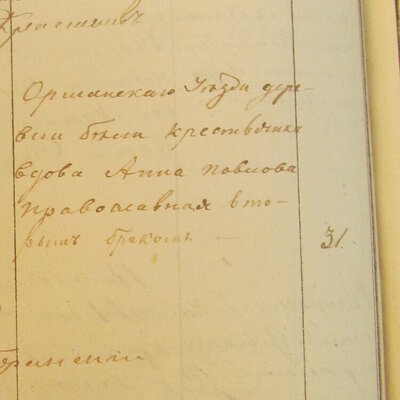 Оршанскаго Уѣзда дер-
вни крестьянка
вдова Анна Павлова
православная вто-
рымъ бракомъ 31.